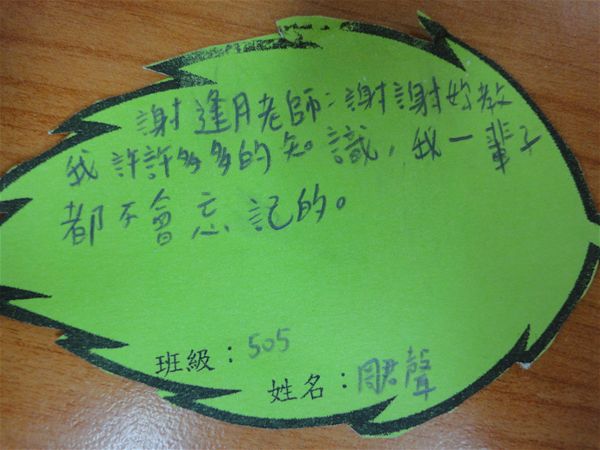 謝逢月老師：謝謝妳教
我許許多多的知識，我一輩子
都不會忘記的。
班級：505
姓名：周君聲